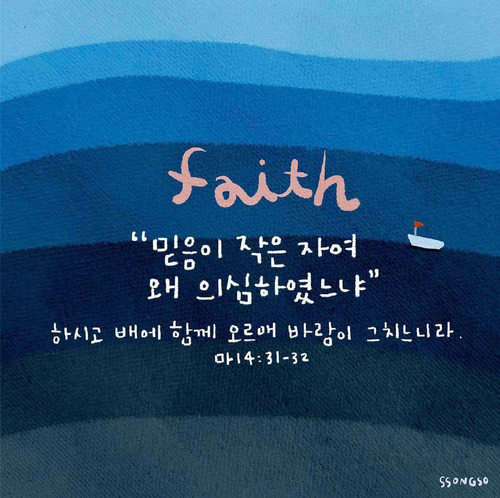 faith
“믿음이 작은 자여
왜 의심하였느냐”
하시고 배에 함께 오르매 바람이 그치느니라.
마14:31-32
SSONGSO